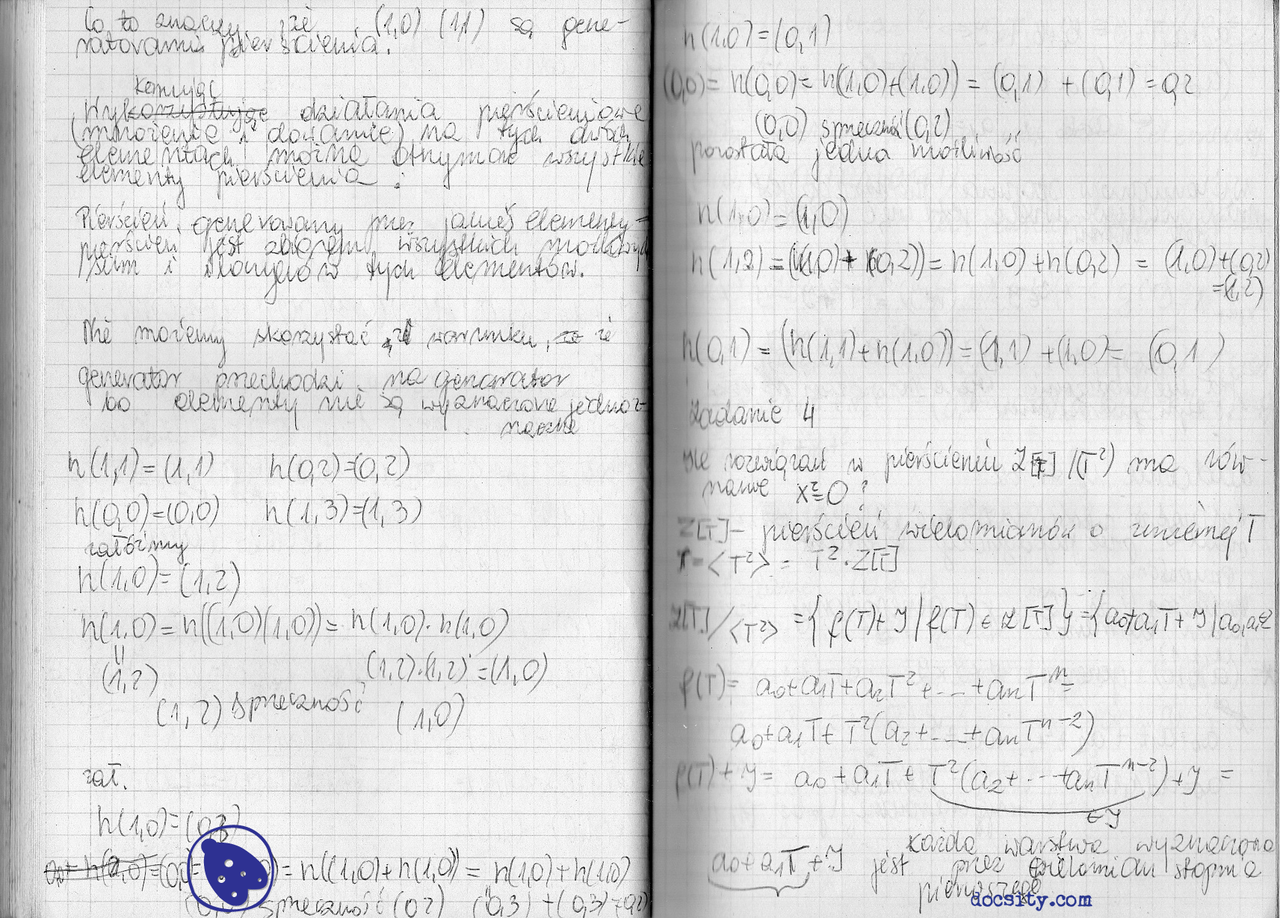 Co to znaczy, że (1,0) (1,1) są gene-
ratorami pierścienia.
Komując
Wykorzystując działania pierścieniowe
(mnożenie i dodawanie) na tych dwóch
elementach można otrzymać wszystkie
elementy pierścienia.
Pierścień generowany przez jakieś elementy-
pierścień jest zbiorem wszystkich możliwych
sum i iloczynów tych elementów.
Nie możemy skorzystać z warunku, że
generator przechodzi na generator
bo elementy nie są wyznaczone jednoz-
nacznie
h(1,1)=(1,1) h(0,2)=(0,2)
h(0,0)=(0,0) h(1,3)=(1,3)
załóżmy
h(1,0)=(1,2)
h(1,0)=h((1,0)(1,0))= h(1,0)·h(1,0)
(1,2) (1,2)·(1,2)=(1,0)
(1,2) sprzeczność (1,0)
zał.
h(1,0)=(0,3)
= h((1,0)+(1,0)) = h(1,0)+h(1,0)
sprzeczność (0,2) (0,3)+(0,3)=(0,2)
h(1,0)=(0,1)
(0,0)= h(0,0)= h((1,0)+(1,0)) = (0,1) +(0,1) = 0,2
(0,0) sprzeczność (0,2)
pozostała jedna możliwość
h(1,0)=(1,0)
h(1,2)=((1,0)+(0,2))= h(1,0)+h(0,2) = (1,0)+(0,2)
=(1,2)
h(0,1)=(h(1,1)+h(1,0))=(1,1)+(1,0)= (0,1)
Zadanie 4
Ile rozwiązań w pierścieniu Z[T]/(T²) ma rów-
nanie x²=0?
Z[T]- pierścień wielomianów o zmiennej T
=<T²> = T²·Z[T]
Z[T]/<T²> ={f(T)+J | f(T) ∈ Z[T]}={a₀+a₁T+J | a₀,a₁∈Z
f(T)= a₀+a₁T+a₂T²+...+aₙTⁿ=
a₀+a₁T+T²(a₂+...+aₙTⁿ⁻²)
f(T)+J= a₀+a₁T+T²(a₂+...+aₙTⁿ⁻²)+J =
∈J
a₀+a₁T+J Każda warstwa wyznaczona
jest przez wielomian stopnia
pierwszego
docsity.com